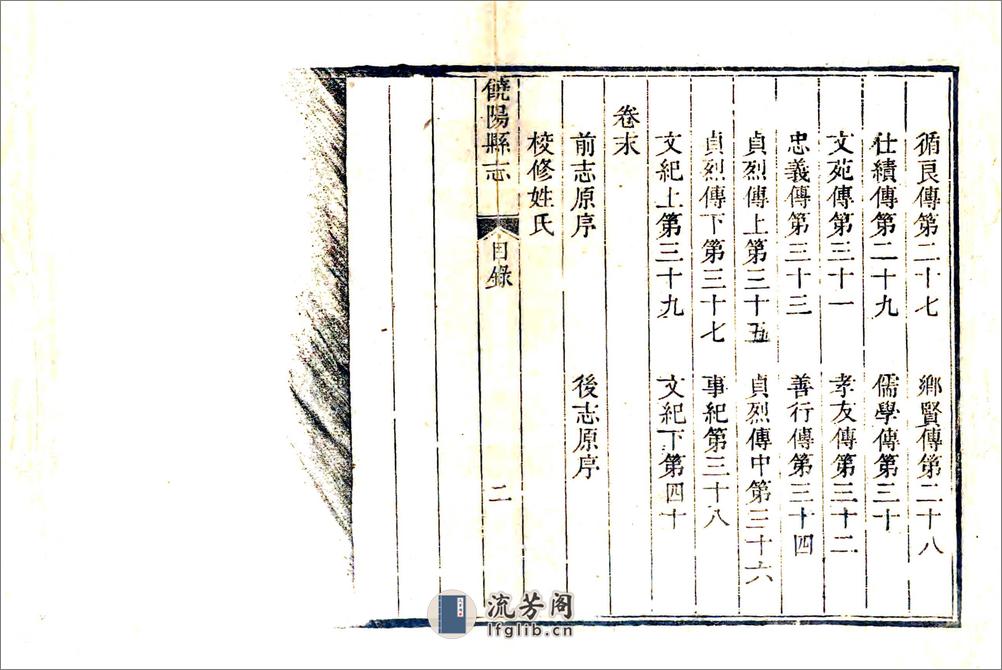 循良傳第二十七　鄉賢傳第二十八
仕績傳第二十九　儒學傳第三十
文苑傳第三十一　孝友傳第三十二
忠義傳第三十三　善行傳第三十四
貞烈傳上第三十五　貞烈傳中第三十六
貞烈傳下第三十七　事紀第三十八
文紀上第三十九　文紀下第四十
卷末
前志原序　後志原序
校修姓氏
饒陽縣志　目錄　二
流芳阁
lfglib.cn